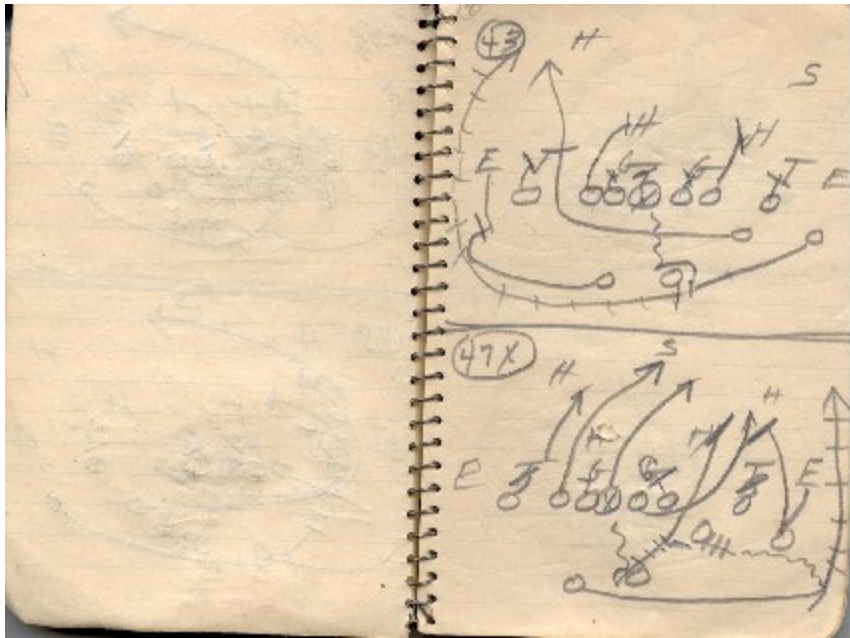 43 H
S
H H
E T G G T E
47X H S H
H H
E T G G T E